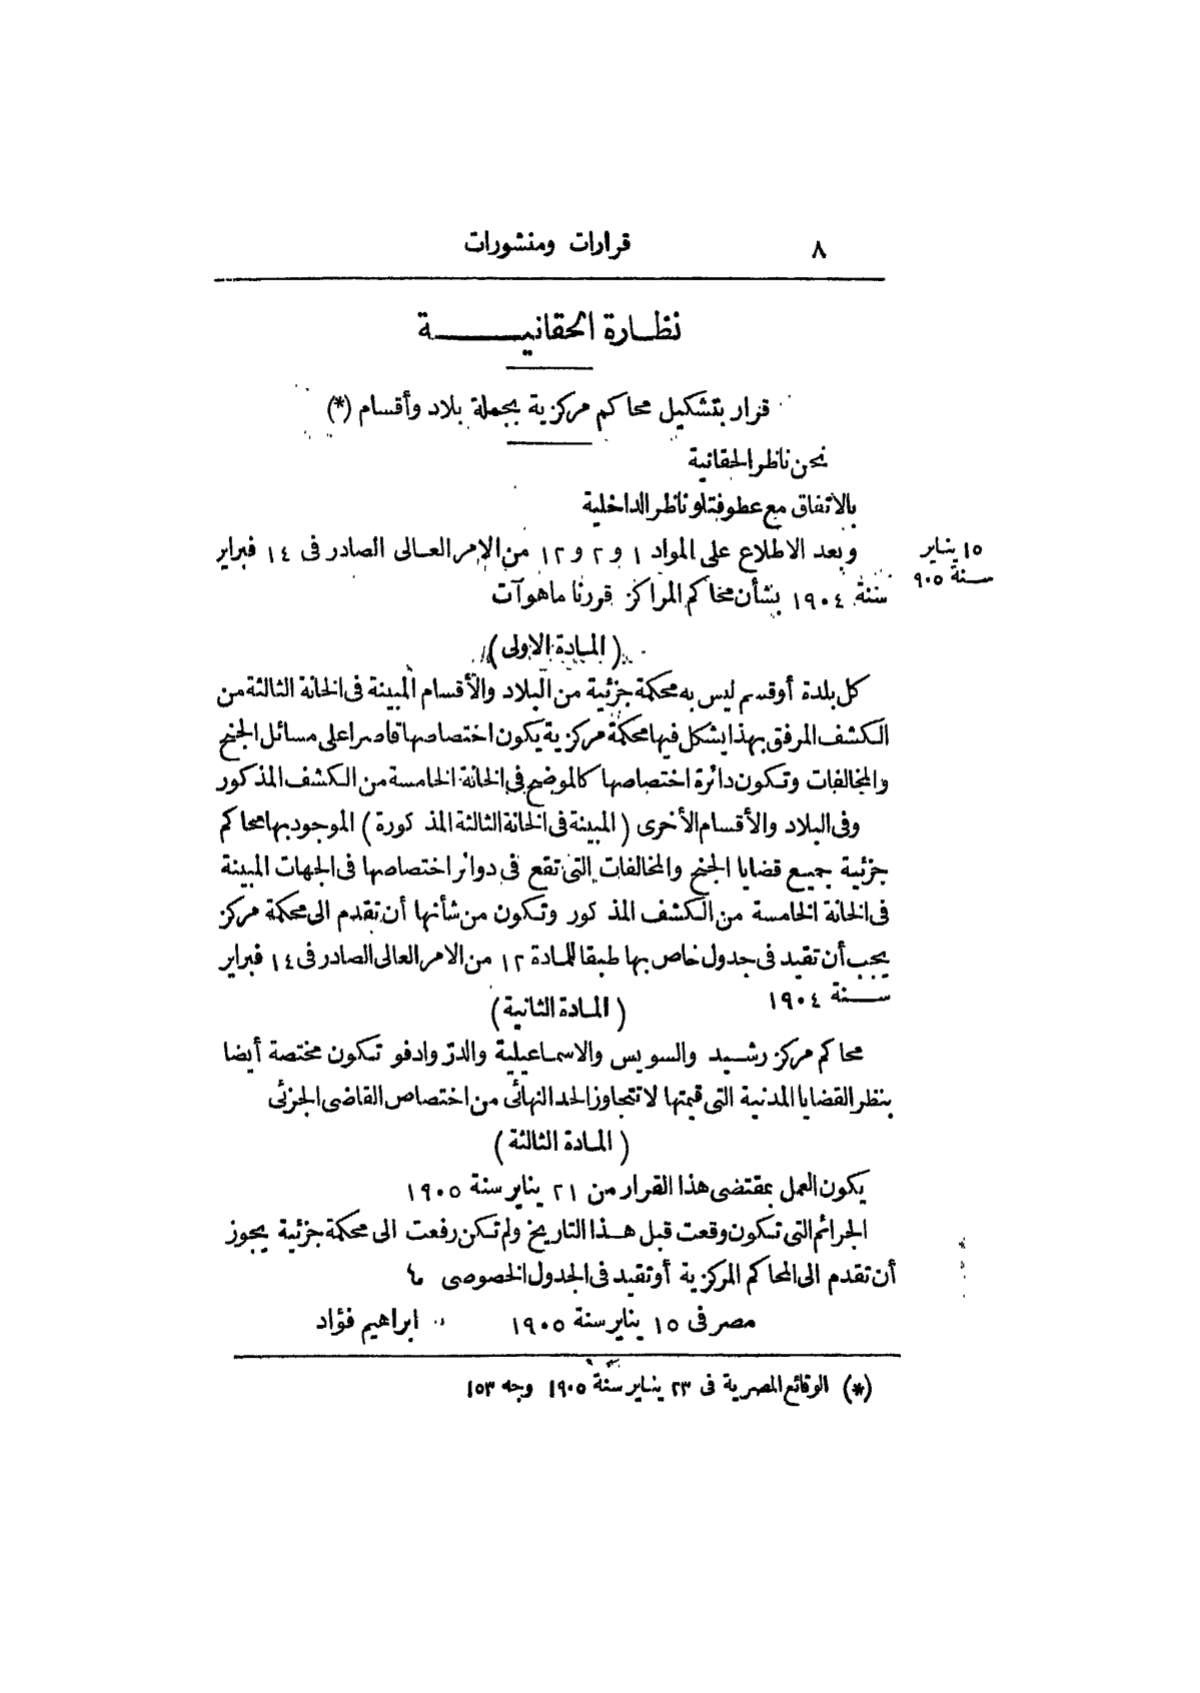 ٨
قرارات ومنشورات
نظارة الحقانية
قرار بتشكيل محاكم مركزية بجملة بلاد وأقسام (*)
نحن ناظر الحقانية
بالاتفاق مع عطوفتلو ناظر الداخلية
١٥ يناير
سنة ٩٠٥
وبعد الاطلاع على المواد ١ و ٢ و ١٢ من الامر العالى الصادر فى ١٤ فبراير
سنة ١٩٠٤ بشأن محاكم المراكز قررنا ما هو آت
(المادة الاولى)
كل بلدة أو قسم ليس به محكمة جزئية من البلاد والأقسام المبينة فى الخانة الثالثة من
الكشف المرفق بهذا يشكل فيها محكمة مركزية يكون اختصاصها قاصرا على مسائل الجنح
والمخالفات وتكون دائرة اختصاصها كالموضح فى الخانة الخامسة من الكشف المذكور
وفى البلاد والأقسام الأخرى (المبينة فى الخانة الثالثة المذكورة) الموجود بها محاكم
جزئية جميع قضايا الجنح والمخالفات التى تقع فى دوائر اختصاصها فى الجهات المبينة
فى الخانة الخامسة من الكشف المذكور وتكون من شأنها أن تقدم الى محكمة مركز
يجب أن تقيد فى جدول خاص بها طبقا للمادة ١٢ من الامر العالى الصادر فى ١٤ فبراير
سنة ١٩٠٤
(المادة الثانية)
محاكم مركز رشيد والسويس والاسماعيلية والدر وادفو تكون مختصة أيضا
بنظر القضايا المدنية التى قيمتها لا تتجاوز الحد النهائى من اختصاص القاضى الجزئى
(المادة الثالثة)
يكون العمل بمقتضى هذا القرار من ٢١ يناير سنة ١٩٠٥
الجرائم التى تكون وقعت قبل هذا التاريخ ولم تكن رفعت الى محكمة جزئية يجوز
أن تقدم الى المحاكم المركزية أو تقيد فى الجدول الخصوصى
مصر فى ١٥ يناير سنة ١٩٠٥ ابراهيم فؤاد
(*) الوقائع المصرية فى ٢٣ يناير سنة ١٩٠٥ وجه ١٥٣